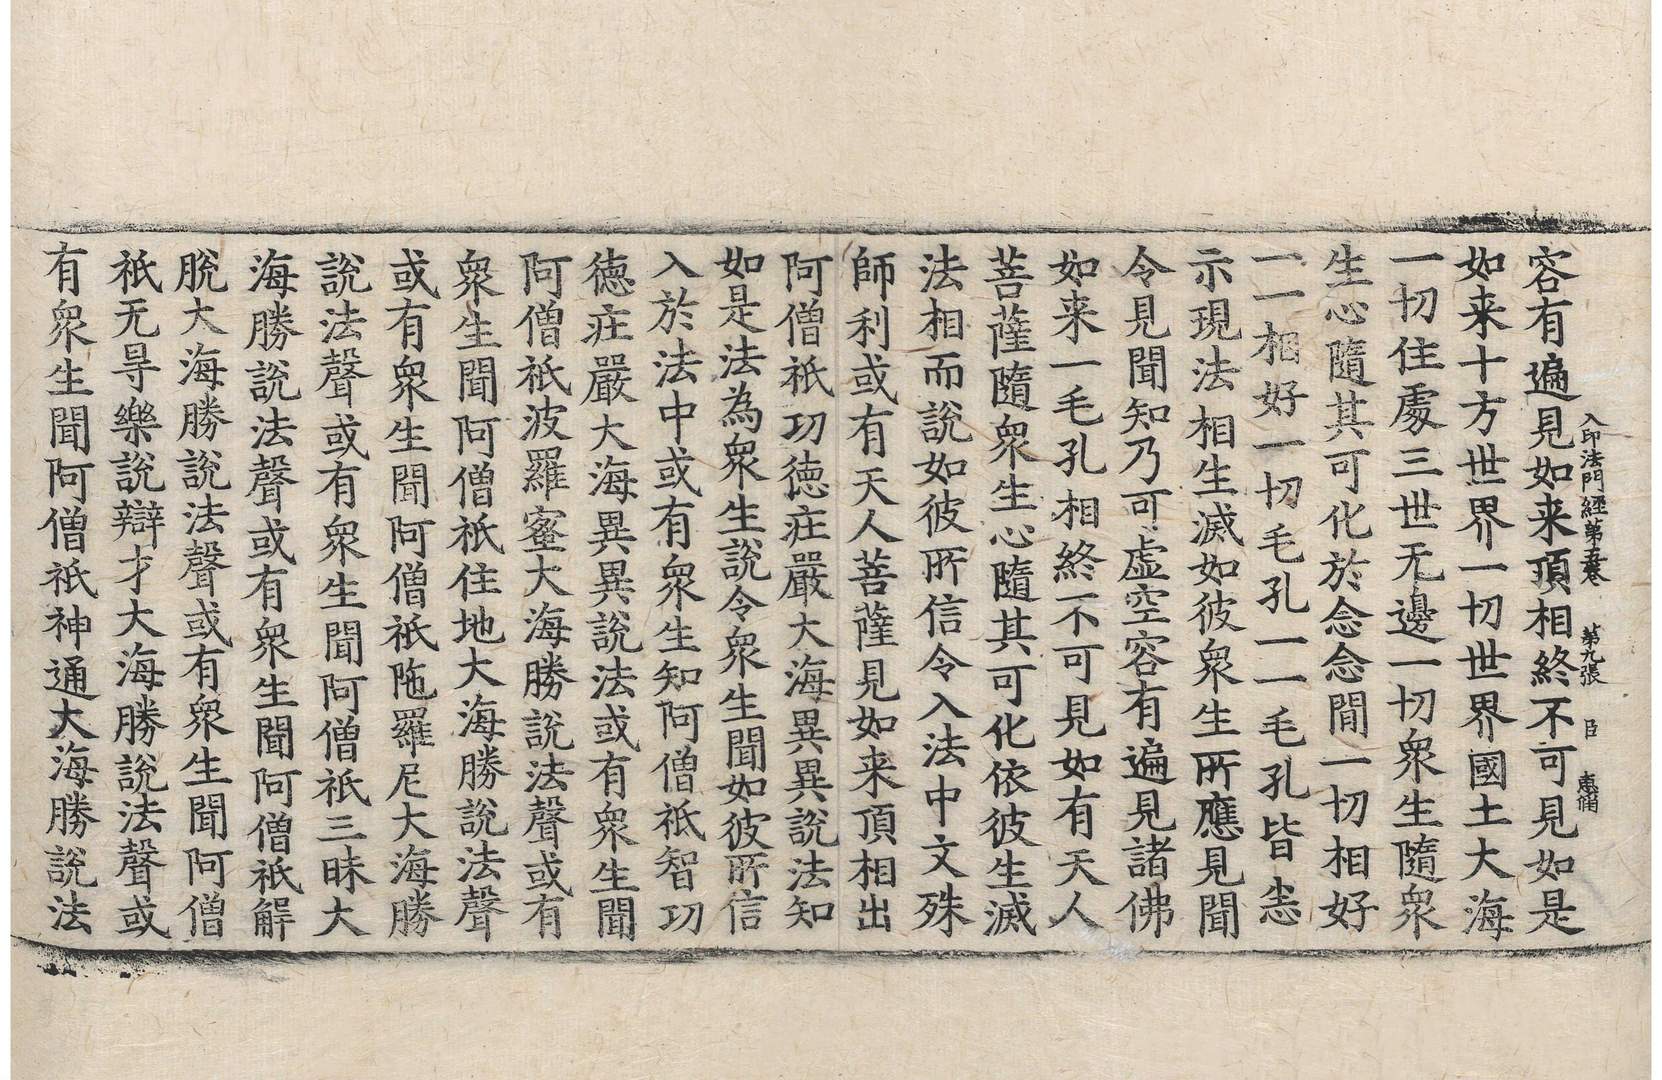 入印法門經第五卷 第九張 臣
容有遍見如来頂相終不可見如是
如来十方世界一切世界國土大海
一切住處三世无邊一切衆生隨衆
生心隨其可化於念念閒一切相好
一一相好一切毛孔一一毛孔皆悉
示現法相生滅如彼衆生所應見聞
令見聞知乃可虛空容有遍見諸佛
如来一毛孔相終不可見如有天人
菩薩隨衆生心隨其可化依彼生滅
法相而說如彼所信令入法中文殊
師利或有天人菩薩見如来頂相出
阿僧祇功德莊嚴大海異異說法知
如是法為衆生說令衆生聞如彼所信
入於法中或有衆生知阿僧祇智功
德莊嚴大海異異說法或有衆生聞
阿僧祇波羅蜜大海勝說法聲或有
衆生聞阿僧祇住地大海勝說法聲
或有衆生聞阿僧祇陁羅尼大海勝
說法聲或有衆生聞阿僧祇三昧大
海勝說法聲或有衆生聞阿僧祇解
脫大海勝說法聲或有衆生聞阿僧
祇无㝵樂說辯才大海勝說法聲或
有衆生聞阿僧祇神通大海勝說法